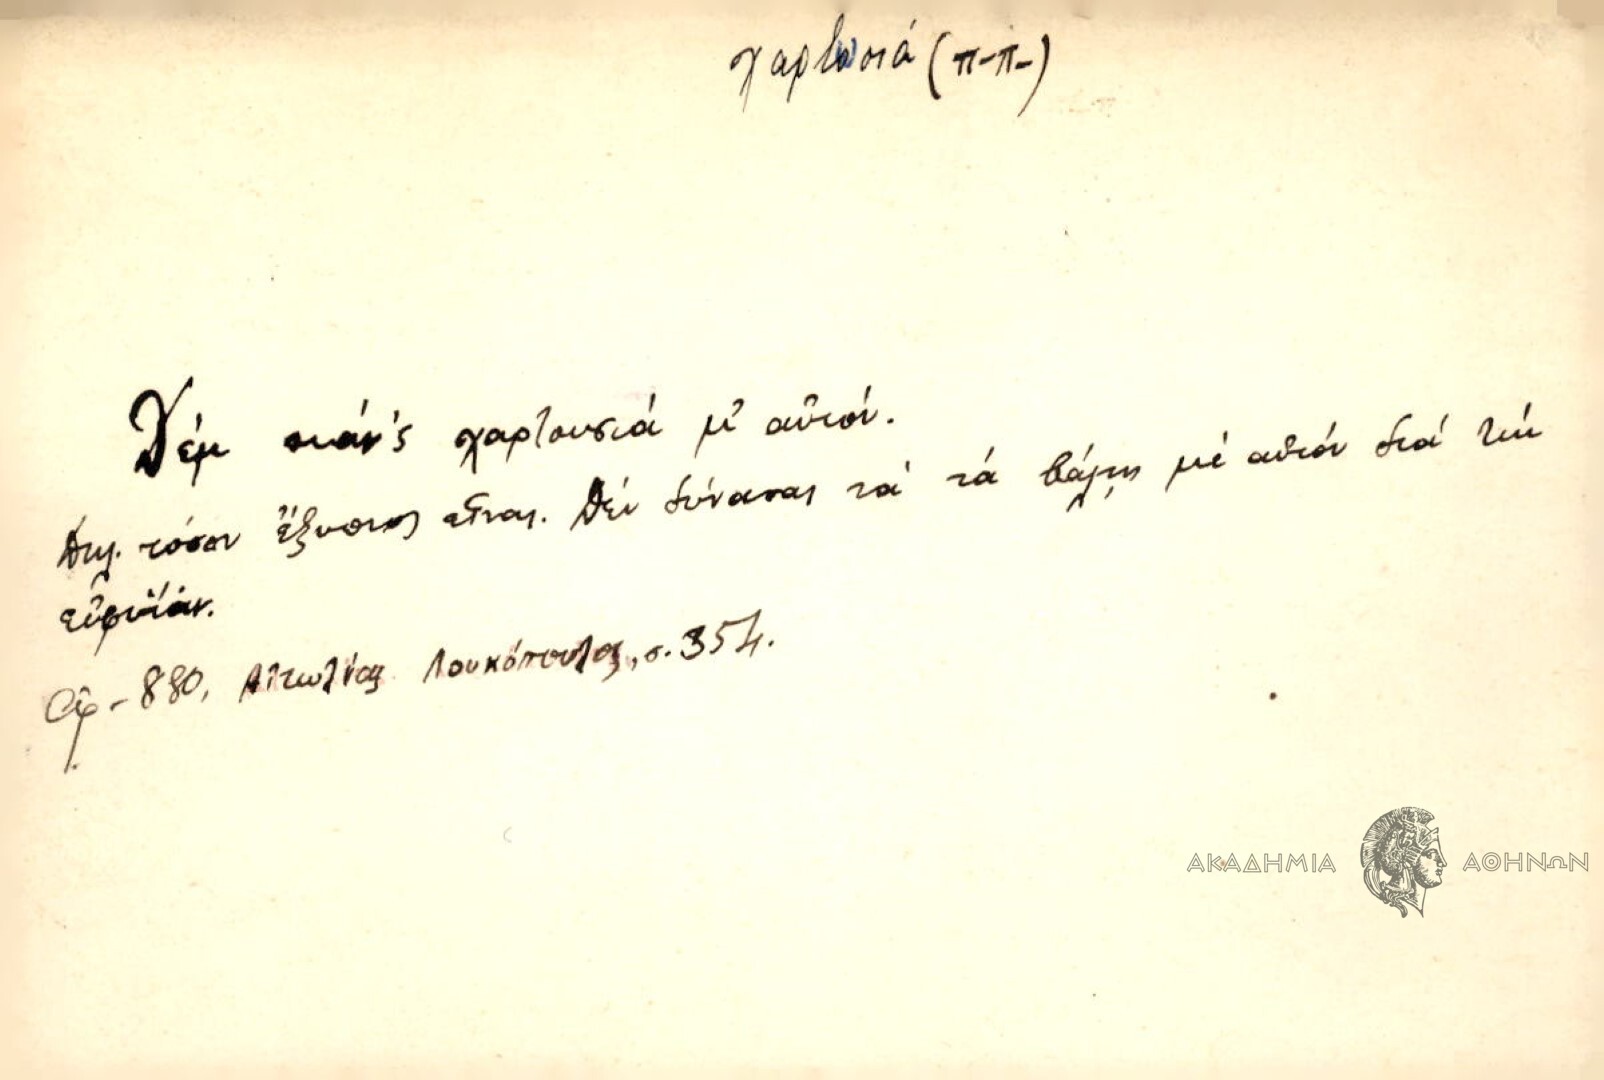 χαρτωσιά (π-π-)
Δέμ πιάν'ς χαρτουσιά μ' αὐτόν.
Δηλ. τόσον ἔξυπνος εἶναι. Δέν δύνασαι νά τά βάλῃς μέ αὐτόν διά τήν
εὐφυΐαν.
Ἀρ- 880, Αἰτωλίας Λουκόπουλος, σ. 354.
ΑΚΑΔΗΜΙΑ ΑΘΗΝΩΝ